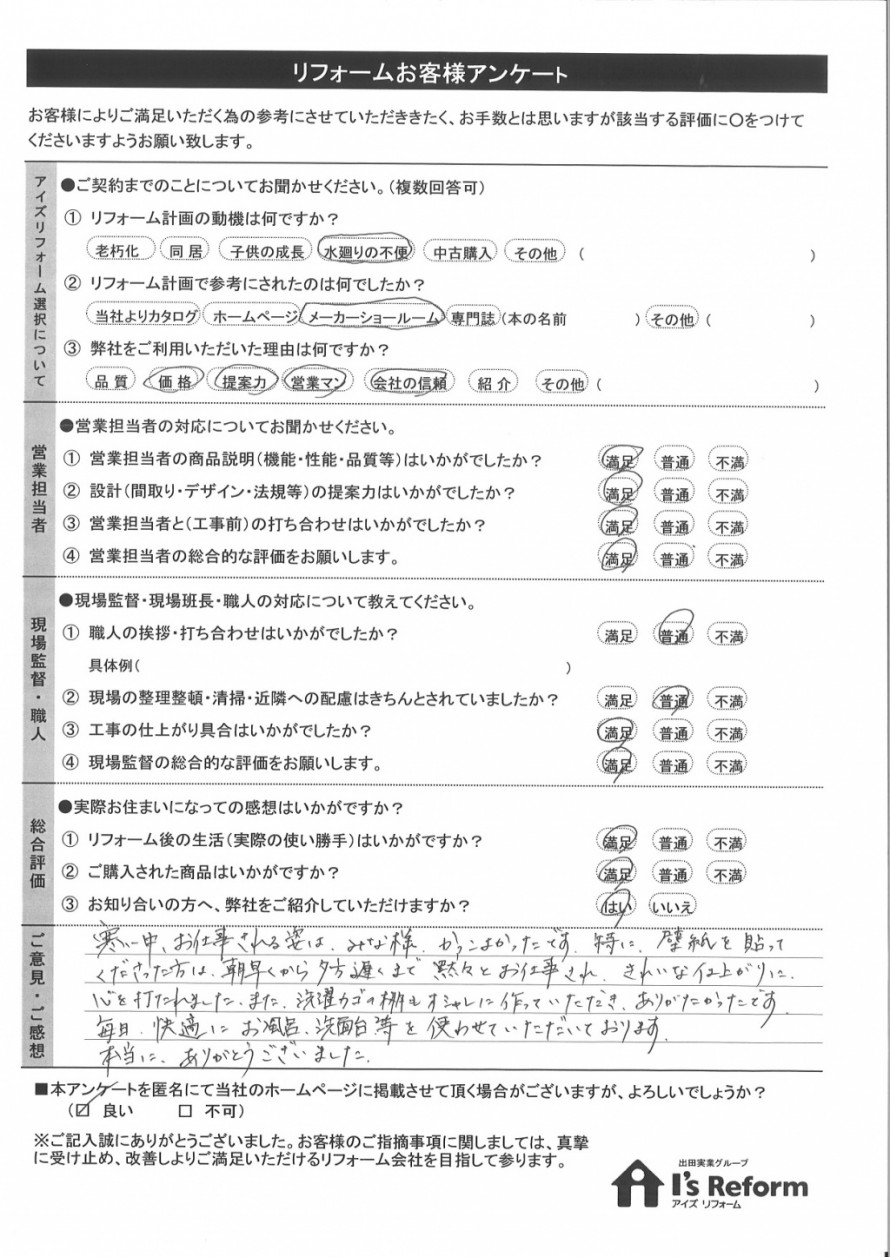 リフォームお客様アンケート
お客様によりご満足いただく為の参考にさせていただききたく、お手数とは思いますが該当する評価に〇をつけて
くださいますようお願い致します。
アイズリフォーム選択について
●ご契約までのことについてお聞かせください。(複数回答可)
① リフォーム計画の動機は何ですか？
老朽化 同居 子供の成長 水廻りの不便 中古購入 その他 ( )
② リフォーム計画で参考にされたのは何でしたか？
当社よりカタログ ホームページ メーカーショールーム 専門誌(本の名前 ) その他 ( )
③ 弊社をご利用いただいた理由は何ですか？
品質 価格 提案力 営業マン 会社の信頼 紹介 その他 ( )
営業担当者
●営業担当者の対応についてお聞かせください。
① 営業担当者の商品説明(機能・性能・品質等)はいかがでしたか？ 満足 普通 不満
② 設計(間取り・デザイン・法規等)の提案力はいかがでしたか？ 満足 普通 不満
③ 営業担当者と(工事前)の打ち合わせはいかがでしたか？ 満足 普通 不満
④ 営業担当者の総合的な評価をお願いします。 満足 普通 不満
現場監督・職人
●現場監督・現場班長・職人の対応について教えてください。
① 職人の挨拶・打ち合わせはいかがでしたか？ 満足 普通 不満
具体例( )
② 現場の整理整頓・清掃・近隣への配慮はきちんとされていましたか？ 満足 普通 不満
③ 工事の仕上がり具合はいかがでしたか？ 満足 普通 不満
④ 現場監督の総合的な評価をお願いします。 満足 普通 不満
総合評価
●実際お住まいになっての感想はいかがですか？
① リフォーム後の生活(実際の使い勝手)はいかがですか？ 満足 普通 不満
② ご購入された商品はいかがですか？ 満足 普通 不満
③ お知り合いの方へ、弊社をご紹介していただけますか？ はい いいえ
ご意見・ご感想
寒い中、お仕事される姿は、みな様、かっこよかったです。特に、壁紙を貼って
くださった方は、朝早くから夕方遅くまで黙々とお仕事され、きれいな仕上がりに、
心を打たれました。また、洗濯カゴの棚もオシャレに作っていただき、ありがたかったです。
毎日、快適にお風呂、洗面台等を使わせていただいております。
本当に、ありがとうございました。
■本アンケートを匿名にて当社のホームページに掲載させて頂く場合がございますが、よろしいでしょうか？
(☑ 良い □ 不可)
※ご記入誠にありがとうございました。お客様のご指摘事項に関しましては、真摯
に受け止め、改善しよりご満足いただけるリフォーム会社を目指して参ります。
出田実業グループ
I's Reform
アイズ リフォーム